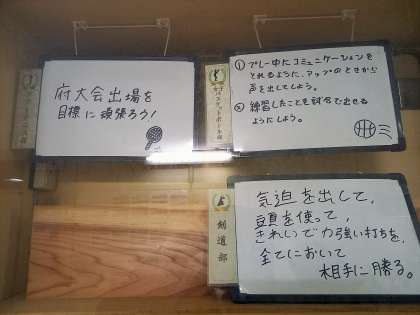 府大会出場を
目標に頑張ろう!
① プレー中にコミュニケーションを
とれるように、アップのときから
声を出してしよう。
② 練習したことを試合で出せる
ようにしよう。
気迫を出して、
頭を使って、
きれいで力強い打ちを、
全てにおいて
相手に勝る。
剣道部